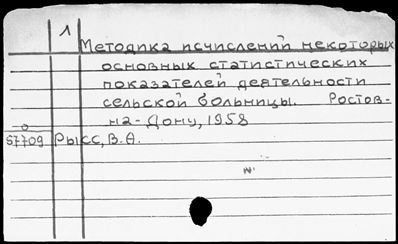 1
Методика исчислений некоторых
основных статистических
показателей деятельности
сельской больницы. Ростов-
на-Дону, 1958
57709 Рысс, В.А.